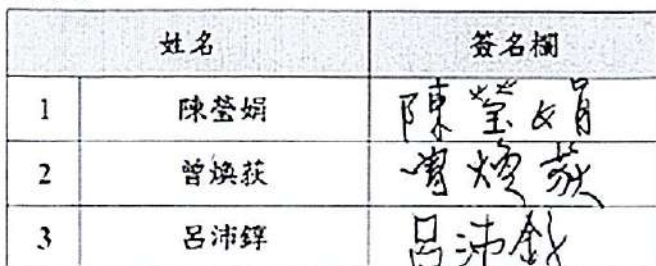 姓名 簽名欄
1 陳瑩娟 陳瑩娟
2 曾煥荻 曾煥荻
3 呂沛錞 呂沛錞